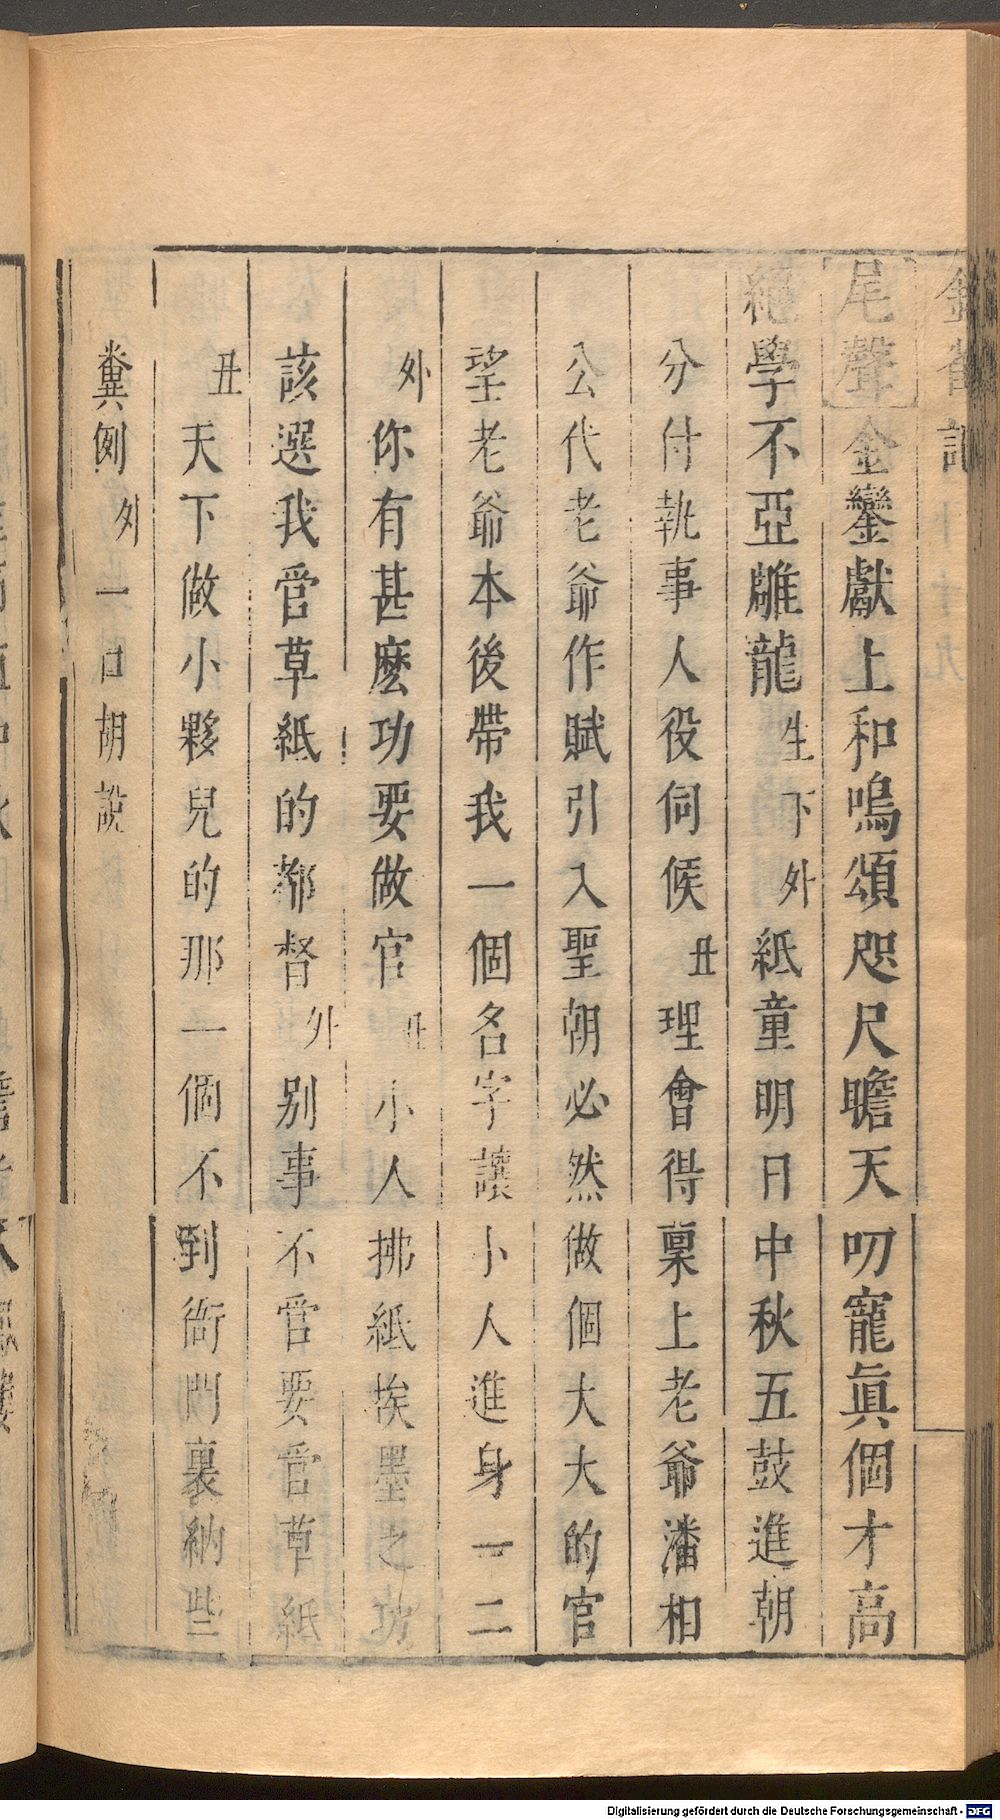 尾聲金鑾獻上和鳴頌咫尺瞻天叨寵真個才高
絕學不亞雕龍生下外紙童明日中秋五鼓進朝
分付執事人役伺候丑理會得稟上老爺潘相
公代老爺作賦引入聖朝必然做個大大的官
望老爺本後帶我一個名字讓小人進身一二
外你有甚麽功要做官丑小人拂紙挨墨之功
該選我官草紙的都督外别事不官要官草紙
丑天下做小夥兒的那一個不到衙門裏納些
糞例外一口胡說
Digitalisierung gefördert durch die Deutsche Forschungsgemeinschaft - DFG